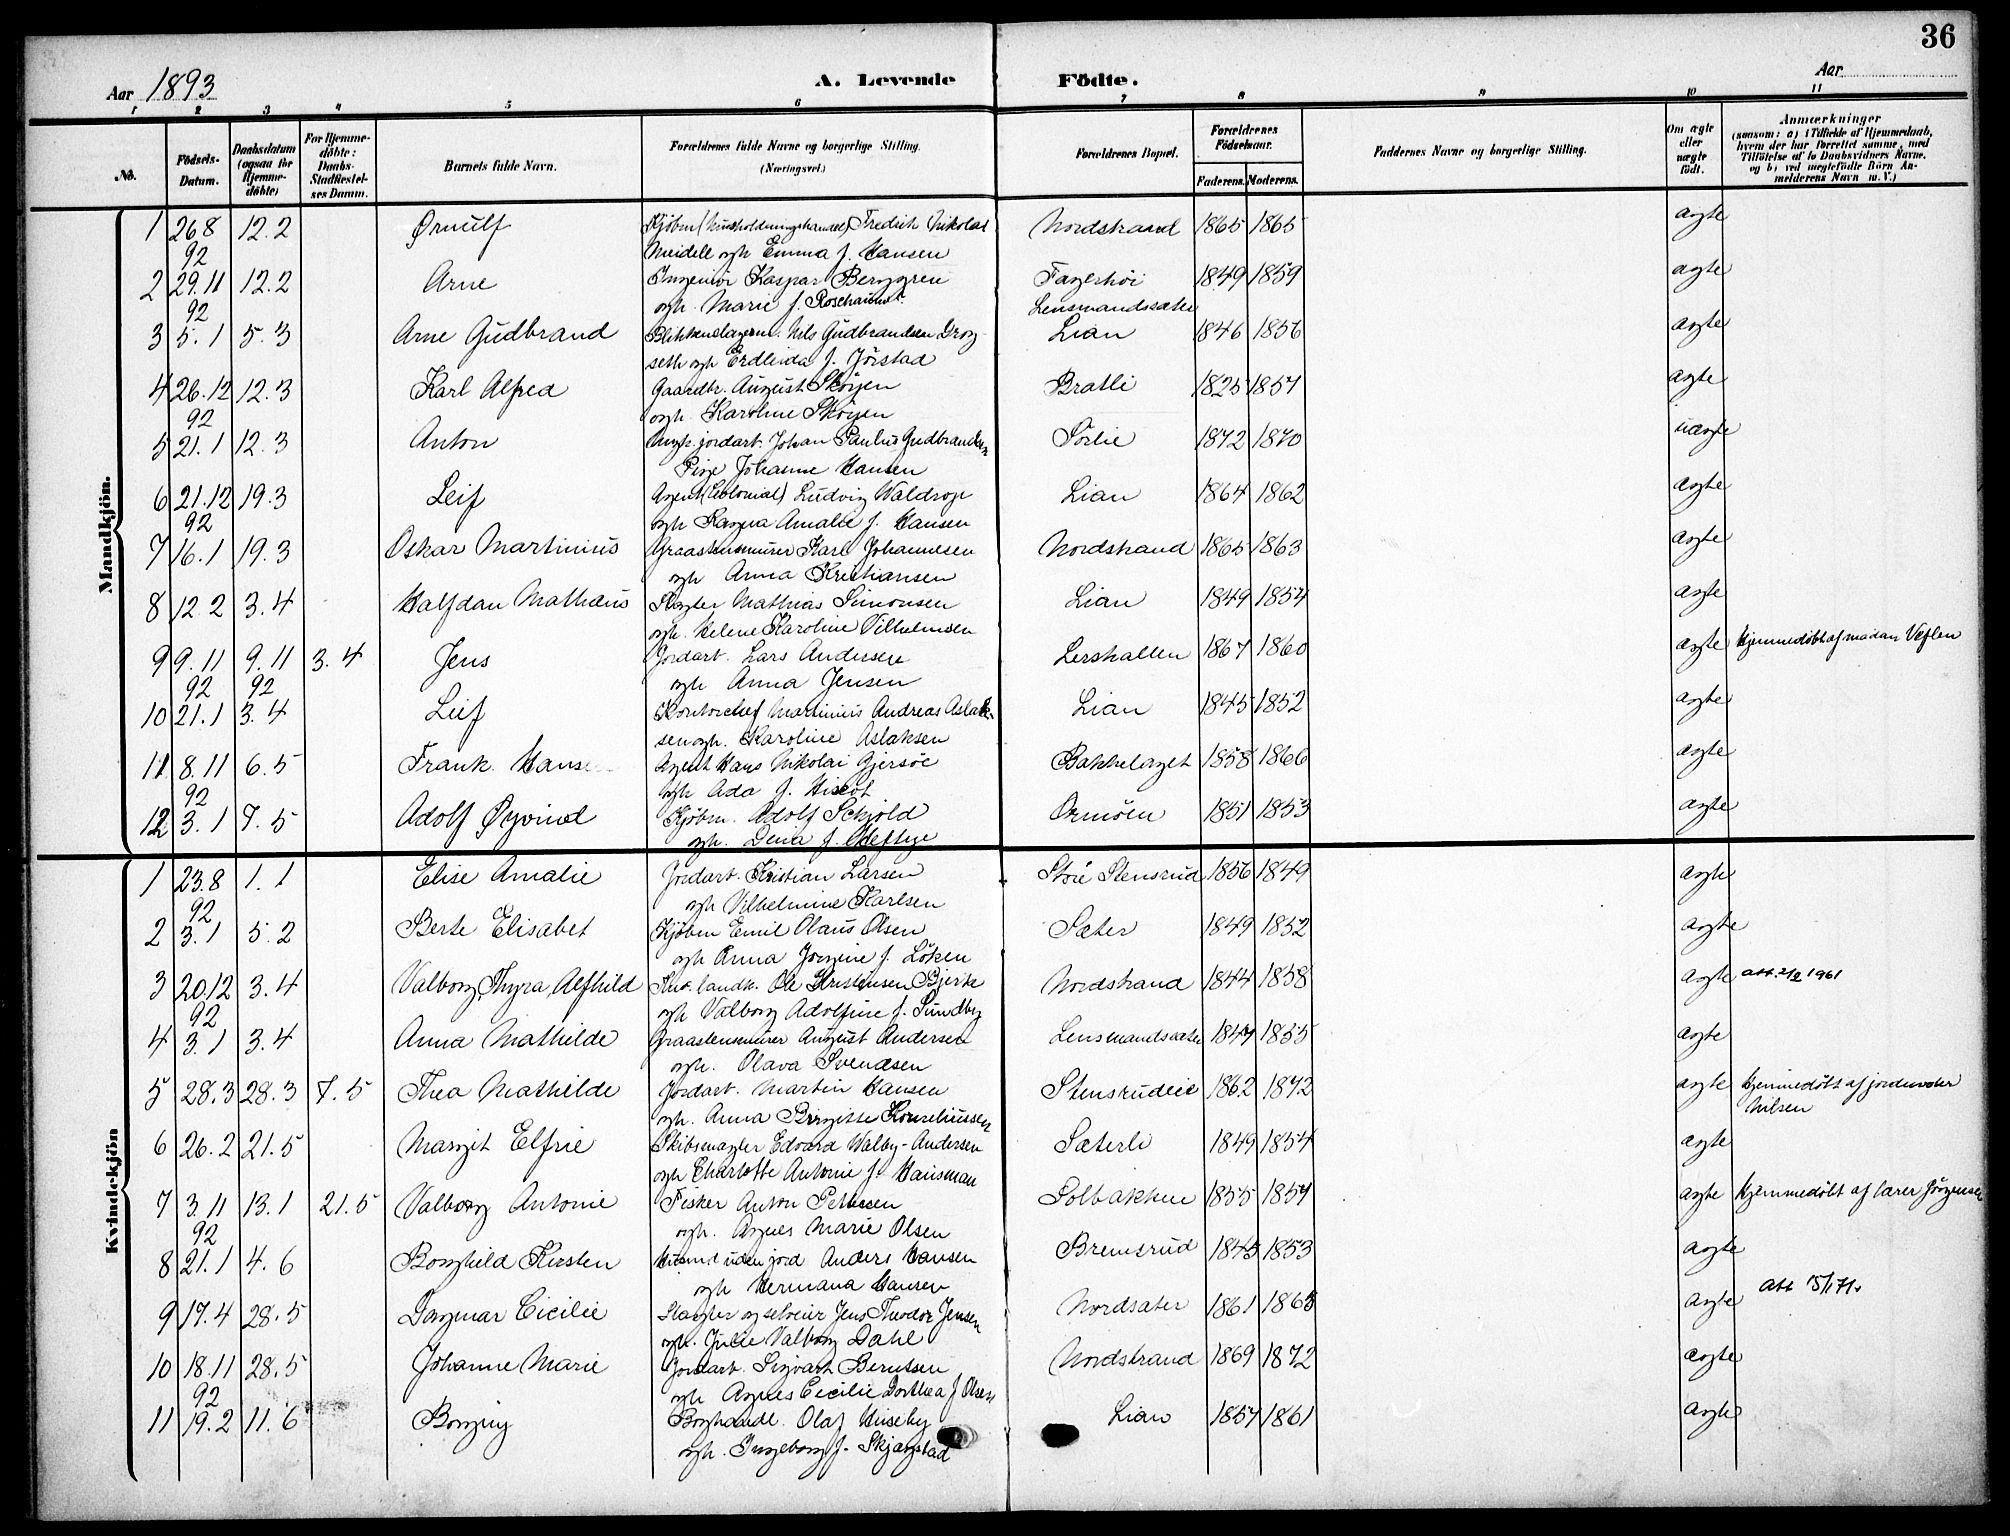 36
Aar 1893
A. Levende Födte.
Aar
1 2 3 4 5 6 7 8 9 10 11
No. Födsels-Datum. Daabsdatum (ogsaa for Hjemme-döbte) For Hjemme-döbte: Daabs-Stadfæstel-ses Datum. Barnets fulde Navn. Forældrenes fulde Navne og borgerlige Stilling. (Næringsvei.) Forældrenes Bopæl. Forældrenes Födselsaar. Faderens. Moderens. Faddernes Navne og borgerlige Stilling. Om ægte eller uægte födt. Anmærkninger (saasom: a) i Tilfælde af Hjemmedaab, hvem der har forrettet samme, med Tilföielse af to Daabsvidners Navne, og b) ved uægtefödte Börn An-melderens Navn m. V.)
Mandkjön.
1 26.8 12.2 Ørnulf Kjöbm (husholdningshandel) Fredrik Nikolai Nordstrand 1865 1865 ægte
92 Meidell og h Emma f. Hansen
2 29.11 12.2 Arne Ingeniör Kaspar Berggren Fagerhöi 1849 1859 ægte
92 og h. Marie f. Lensmandssæter
3 5.1 5.3 Arne Gudbrand Blikkenslagerm. Nils Gudbrandsen Drog- Lian 1846 1856 ægte
seth og h Erdlinda f. Jörstad
4 26.12 12.3 Karl Alfred Gaardbr. August Sköyen Bratli 1825 1857 ægte
92 og h. Karoline Sköyen
5 21.1 12.3 Anton Ungk. jordarb. Johan Paulus Gudbrandsen Sörlie 1872 1870 uægte
Pige Johanne Hansen
6 21.12 19.3 Leif Agent (Colonial) Ludvig Waldrop Lian 1864 1862 ægte
92 og h Ragna Amalie f. Hansen
7 16.1 19.3 Oskar Martinius Graastensmurer Karl Johannesen Nordstrand 1865 1863 ægte
og h Anna Kristiansen
8 12.2 3.4 Halfdan Mathæus Slagter Mathias Simonsen Lian 1849 1854 ægte
og h. Helene Karoline Vilhelmsen
9 9.11 9.11 3.4 Jens Jordarb. Lars Andersen Lershallen 1867 1860 ægte Hjemmedöbt af madam Veflen
92 92 og h Anna Jensen
10 21.1 3.4 Leif Kontorchef Martinius Andreas Aslak- Lian 1845 1852 ægte
sen og h. Karoline Aslaksen
11 8.11 6.5 Frank Hans Agent Hans Nikolai Gjersöe Bakkelaget 1858 1866 ægte
92 og h Ada f. Hiscot
12 3.1 7.5 Adolf Øyvind Kjöbm. Adolf Schjold Ormöen 1851 1853 ægte
og h. Dina f. Heftye
Kvindekjön
1 23.8 1.1 Elise Amalie Jordarb. Kristian Larsen Store Stensrud 1856 1849 ægte
92 og h Vilhelmine Karlsen
2 3.1 5.2 Berte Elisabet Kjöbm Emil Olaus Olsen Sæter 1849 1852 ægte
og h Anna Jörgine f. Löken
3 20.12 3.4 Valborg Thyra Alfhild landh. Ole Kristensen Bjerke Nordstrand 1844 1858 ægte att. 2/2 1961
92 og h Valborg Adolfine f. Sundby
4 3.1 3.4 Anna Mathilde Graastensmurer August Andersen Lensmandssæter 1847 1855 ægte
og h. Olava Svendsen
5 28.3 28.3 7.5 Thea Mathilde Jordarb. Martin Hansen Stensrudeie 1862 1872 ægte Hjemmedöbt af jordmoder
og h. Anna Birgitte Korneliussen Nilsen
6 26.2 21.5 Margit Elfrie Skibsmægler Edvard Walby-Andersen Sæterli 1849 1854 ægte
og h Charlotte Antonie f. Hansman
7 3.11 13.1 21.5 Valborg Antonie Fisker Anton Petersen Solbakken 1855 1857 ægte Hjemmedöbt af lærer Jörgensen
92 og h. Agnes Marie Olsen
8 21.1 4.6 Borghild Kirsten Husmd uden jord Anders Hansen Bremsrud 1845 1853 ægte
og h Hermana Hansen
9 17.4 28.5 Dagmar Cicilie Slagter og selveier Jens Theodor Jensen Nordsæter 1861 1865 ægte att 15/1 71.
og h. Julie Valborg Dahl
10 18.11 28.5 Johanne Marie Jordarb. Sigvart Berntsen Nordstrand 1869 1872 ægte
92 og h Agnes Cecilie Dorthea f Olsen
11 19.2 11.6 Borgny Boghandl. Olaf Huseby Lian 1857 1861 ægte
og h. Ingeborg f. Skjægstad